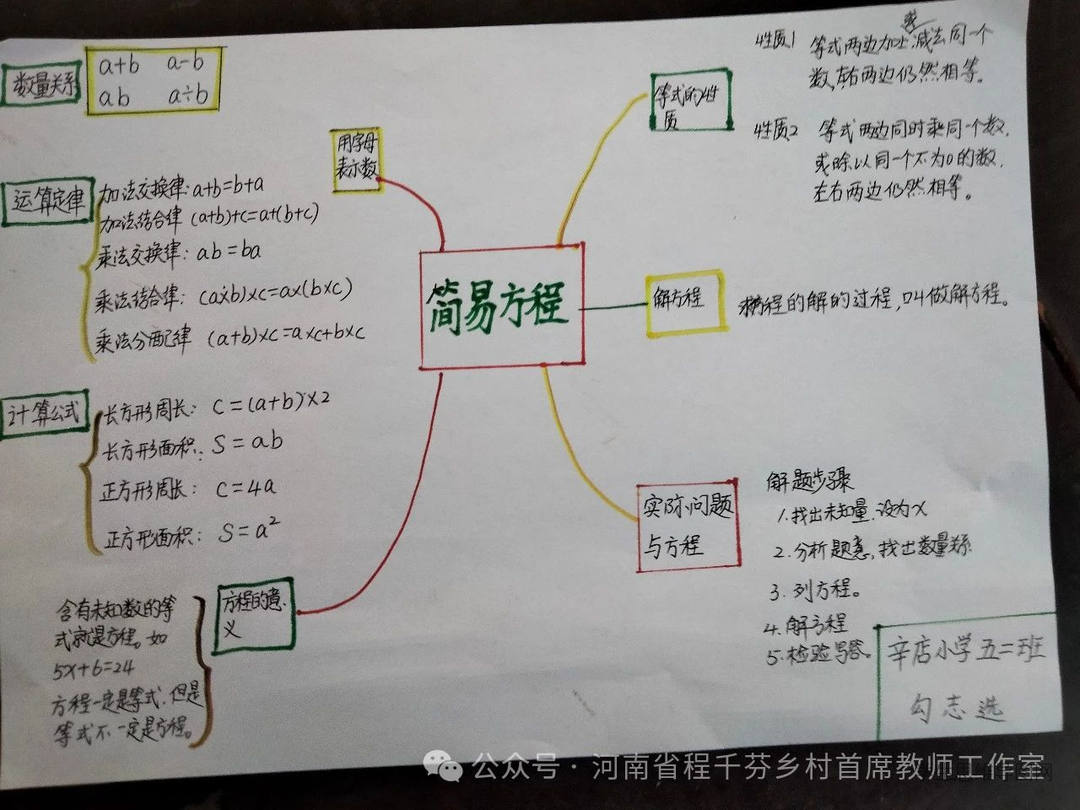 简易方程
用字母
表示数
数量关系
a+b a-b
ab a÷b
运算定律
加法交换律:a+b=b+a
加法结合律 (a+b)+c=a+(b+c)
乘法交换律: ab=ba
乘法结合律: (a×b)×c=a×(b×c)
乘法分配律 (a+b)×c=a×c+b×c
计算公式
长方形周长: C=(a+b)×2
长方形面积: S=ab
正方形周长: C=4a
正方形面积: S=a²
方程的意
义
含有未知数的等
式就是方程。如
5x+6=24
方程一定是等式,但是
等式不一定是方程。
等式的性
质
性质1 等式两边加上或减去同一个
数,左右两边仍然相等。
性质2 等式两边同时乘同一个数,
或除以同一个不为0的数,
左右两边仍然相等。
解方程
求方程的解的过程,叫做解方程。
实际问题
与方程
解题步骤
1.找出未知量,设为x
2.分析题意,找出数量关系
3.列方程。
4.解方程
5.检验写答。
辛店小学五二班
勾志选
公众号·河南省程千芬乡村首席教师工作室